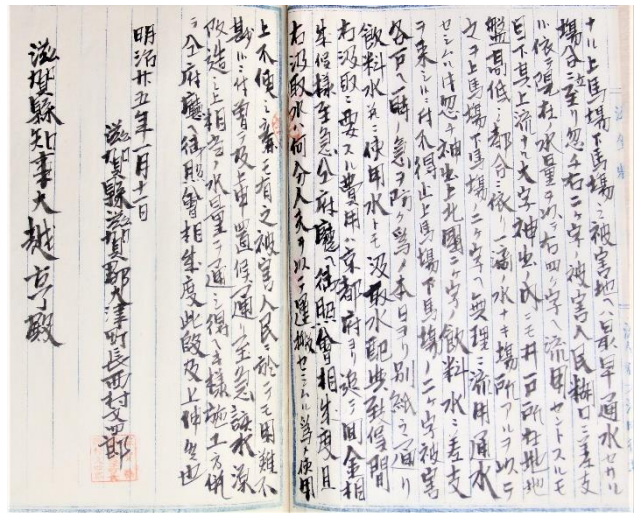 ナル上馬場下馬場ノ被害地ヘハ最早通水セサル
場合ニ至リ忽チ右二ケ字ノ被害人民糊口ニ差支
ニ依リ現在水量ヲ以テ右四ケ字ヘ流用セントスルモ
目下其上流ナル大字神出ノ内ニモ井戸所在地地
盤高低ノ部分ニ依リ一滴水ナキ場所アルヲ以テ
之ヲ上馬場下馬場二ケ字ヘ無理ニ流用通水
セシムレハ忽チ神出上北國二ケ字ノ飲料水ニ差支
ヲ来シ候ニ付不得止上馬場下馬場ノ二ケ字被害
各戸ヘ一時ノ急ヲ防ク為メ本日ヨリ別紙ノ通リ
飲料水並ニ使用水トモ汲取水配與致候間
右汲取ニ要スル費用ハ京都府ヨリ追テ回金相
成候様至急仝府廳ヘ御照會相成度且
右汲取水ハ何分人夫ヲ以テ運搬セシムル為メ使用
上不便ノ義モ有之被害人民ニ於テモ困難不
尠ニ付曽テ及上申置候通リ至急該水源
改造ノ上相当水量ヲ通シ得ヘキ様施工方併
テ仝府廳ヘ御照會相成度此段及上申候也
明治廿五年一月十二日
滋賀縣滋賀郡大津町長西村文四郎
滋賀縣知事大越亨殿